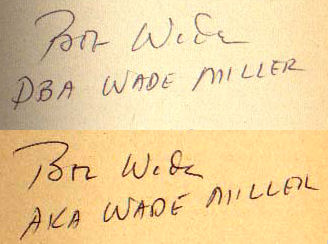 Bob Wade
DBA WADE MILLER
Bob Wade
AKA WADE MILLER